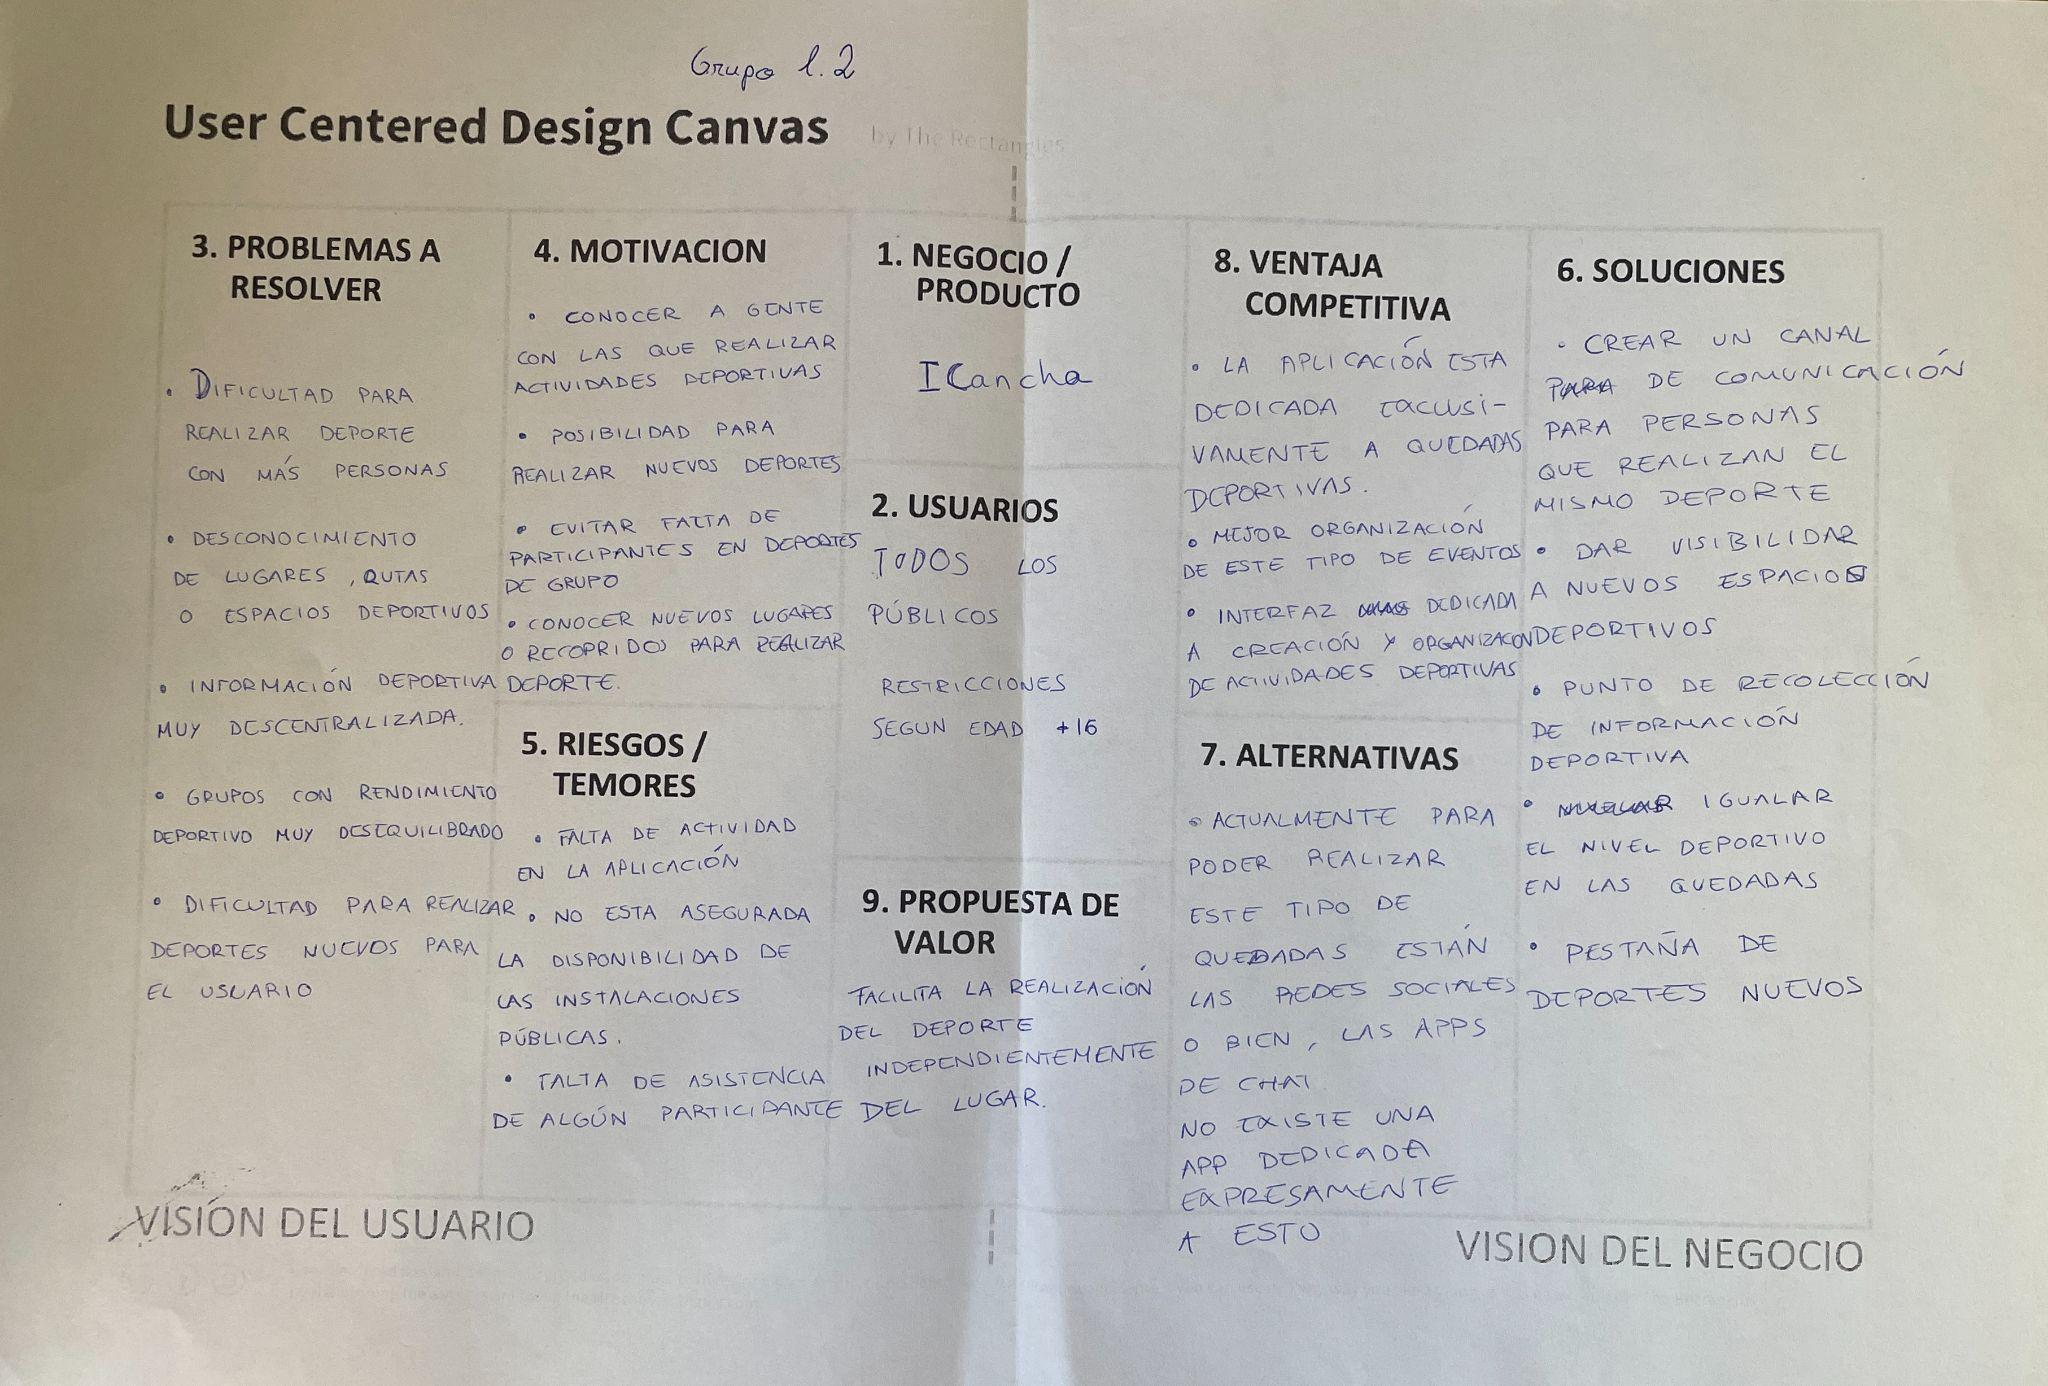 Grupo 1.2
User Centered Design Canvas
by The Rectangles
3. PROBLEMAS A
RESOLVER
• DIFICULTAD PARA
REALIZAR DEPORTE
CON MÁS PERSONAS
• DESCONOCIMIENTO
DE LUGARES, RUTAS
O ESPACIOS DEPORTIVOS
• INFORMACIÓN DEPORTIVA
MUY DESCENTRALIZADA.
• GRUPOS CON RENDIMIENTO
DEPORTIVO MUY DESEQUILIBRADO
• DIFICULTAD PARA REALIZAR
DEPORTES NUEVOS PARA
EL USUARIO
4. MOTIVACION
• CONOCER A GENTE
CON LAS QUE REALIZAR
ACTIVIDADES DEPORTIVAS
• POSIBILIDAD PARA
REALIZAR NUEVOS DEPORTES
• EVITAR FALTA DE
PARTICIPANTES EN DEPORTES
DE GRUPO
• CONOCER NUEVOS LUGARES
O RECORRIDOS PARA REALIZAR
DEPORTE.
5. RIESGOS /
TEMORES
• FALTA DE ACTIVIDAD
EN LA APLICACIÓN
• NO ESTA ASEGURADA
LA DISPONIBILIDAD DE
LAS INSTALACIONES
PÚBLICAS.
• FALTA DE ASISTENCIA
DE ALGÚN PARTICIPANTE
1. NEGOCIO /
PRODUCTO
ICancha
2. USUARIOS
TODOS LOS
PÚBLICOS
RESTRICCIONES
SEGUN EDAD +16
9. PROPUESTA DE
VALOR
FACILITA LA REALIZACIÓN
DEL DEPORTE
INDEPENDIENTEMENTE
DEL LUGAR.
8. VENTAJA
COMPETITIVA
• LA APLICACIÓN ESTA
DEDICADA EXCLUSI-
VAMENTE A QUEDADAS
DEPORTIVAS.
• MEJOR ORGANIZACIÓN
DE ESTE TIPO DE EVENTOS
• INTERFAZ DEDICADA
A CREACIÓN Y ORGANIZACION
DE ACTIVIDADES DEPORTIVAS
7. ALTERNATIVAS
• ACTUALMENTE PARA
PODER REALIZAR
ESTE TIPO DE
QUEDADAS ESTÁN
LAS REDES SOCIALES
O BIEN, LAS APPS
DE CHAT.
NO EXISTE UNA
APP DEDICADA
EXPRESAMENTE
A ESTO
6. SOLUCIONES
• CREAR UN CANAL
PARA DE COMUNICACIÓN
PARA PERSONAS
QUE REALIZAN EL
MISMO DEPORTE
• DAR VISIBILIDAR
A NUEVOS ESPACIOS
DEPORTIVOS
• PUNTO DE RECOLECCIÓN
DE INFORMACIÓN
DEPORTIVA
• IGUALAR
EL NIVEL DEPORTIVO
EN LAS QUEDADAS
• PESTAÑA DE
DEPORTES NUEVOS
VISION DEL USUARIO
VISION DEL NEGOCIO